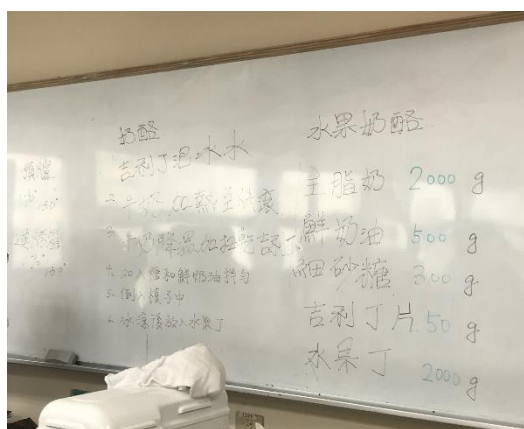 奶酪
吉利丁泡冰水
2. 牛奶加熱至
3. 牛奶降溫
4. 加入糖和鮮奶油拌勻
5. 倒入模子中
6. 冰凍後放入水果丁
水果奶酪
主脂奶 2000 g
鮮奶油 500 g
細砂糖 300 g
吉利丁片 50 g
水果丁 2000 g